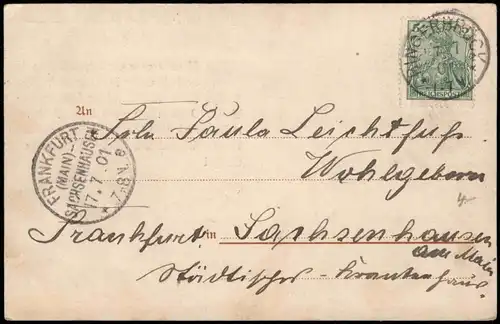 BINGERBRÜCK
An
Frln Paula Leichtfuß
Wohlgeboren
FRANKFURT
(MAIN)-
SACHSENHAUSEN
17.7.01
7-8 N
Frankfurt in Sachsenhausen
am Main
Städtisches Krankenhaus